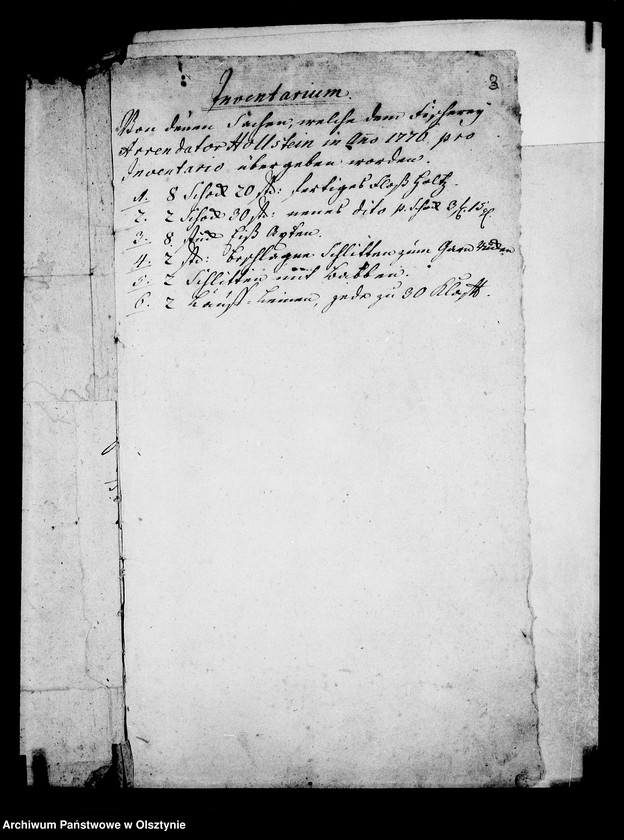 3
Inventarium.
Von denen Sachen, welche dem Fischerey
Arrendator Hollstein in Año 1770 pro
Inventario übergeben worden.
1. 8 Schock 20 st: fertiges Floß Holtz.
2. 2 Schock 30 st: neues dito p. Schock 3 f. 15
3. 8 Eiß Axten.
4. 2 st: beschlagne Schlitten zum Garn
5. 2 Schlitten mit
6. 2 Leinen, jede zu 30 Klaftr.
Archiwum Państwowe w Olsztynie